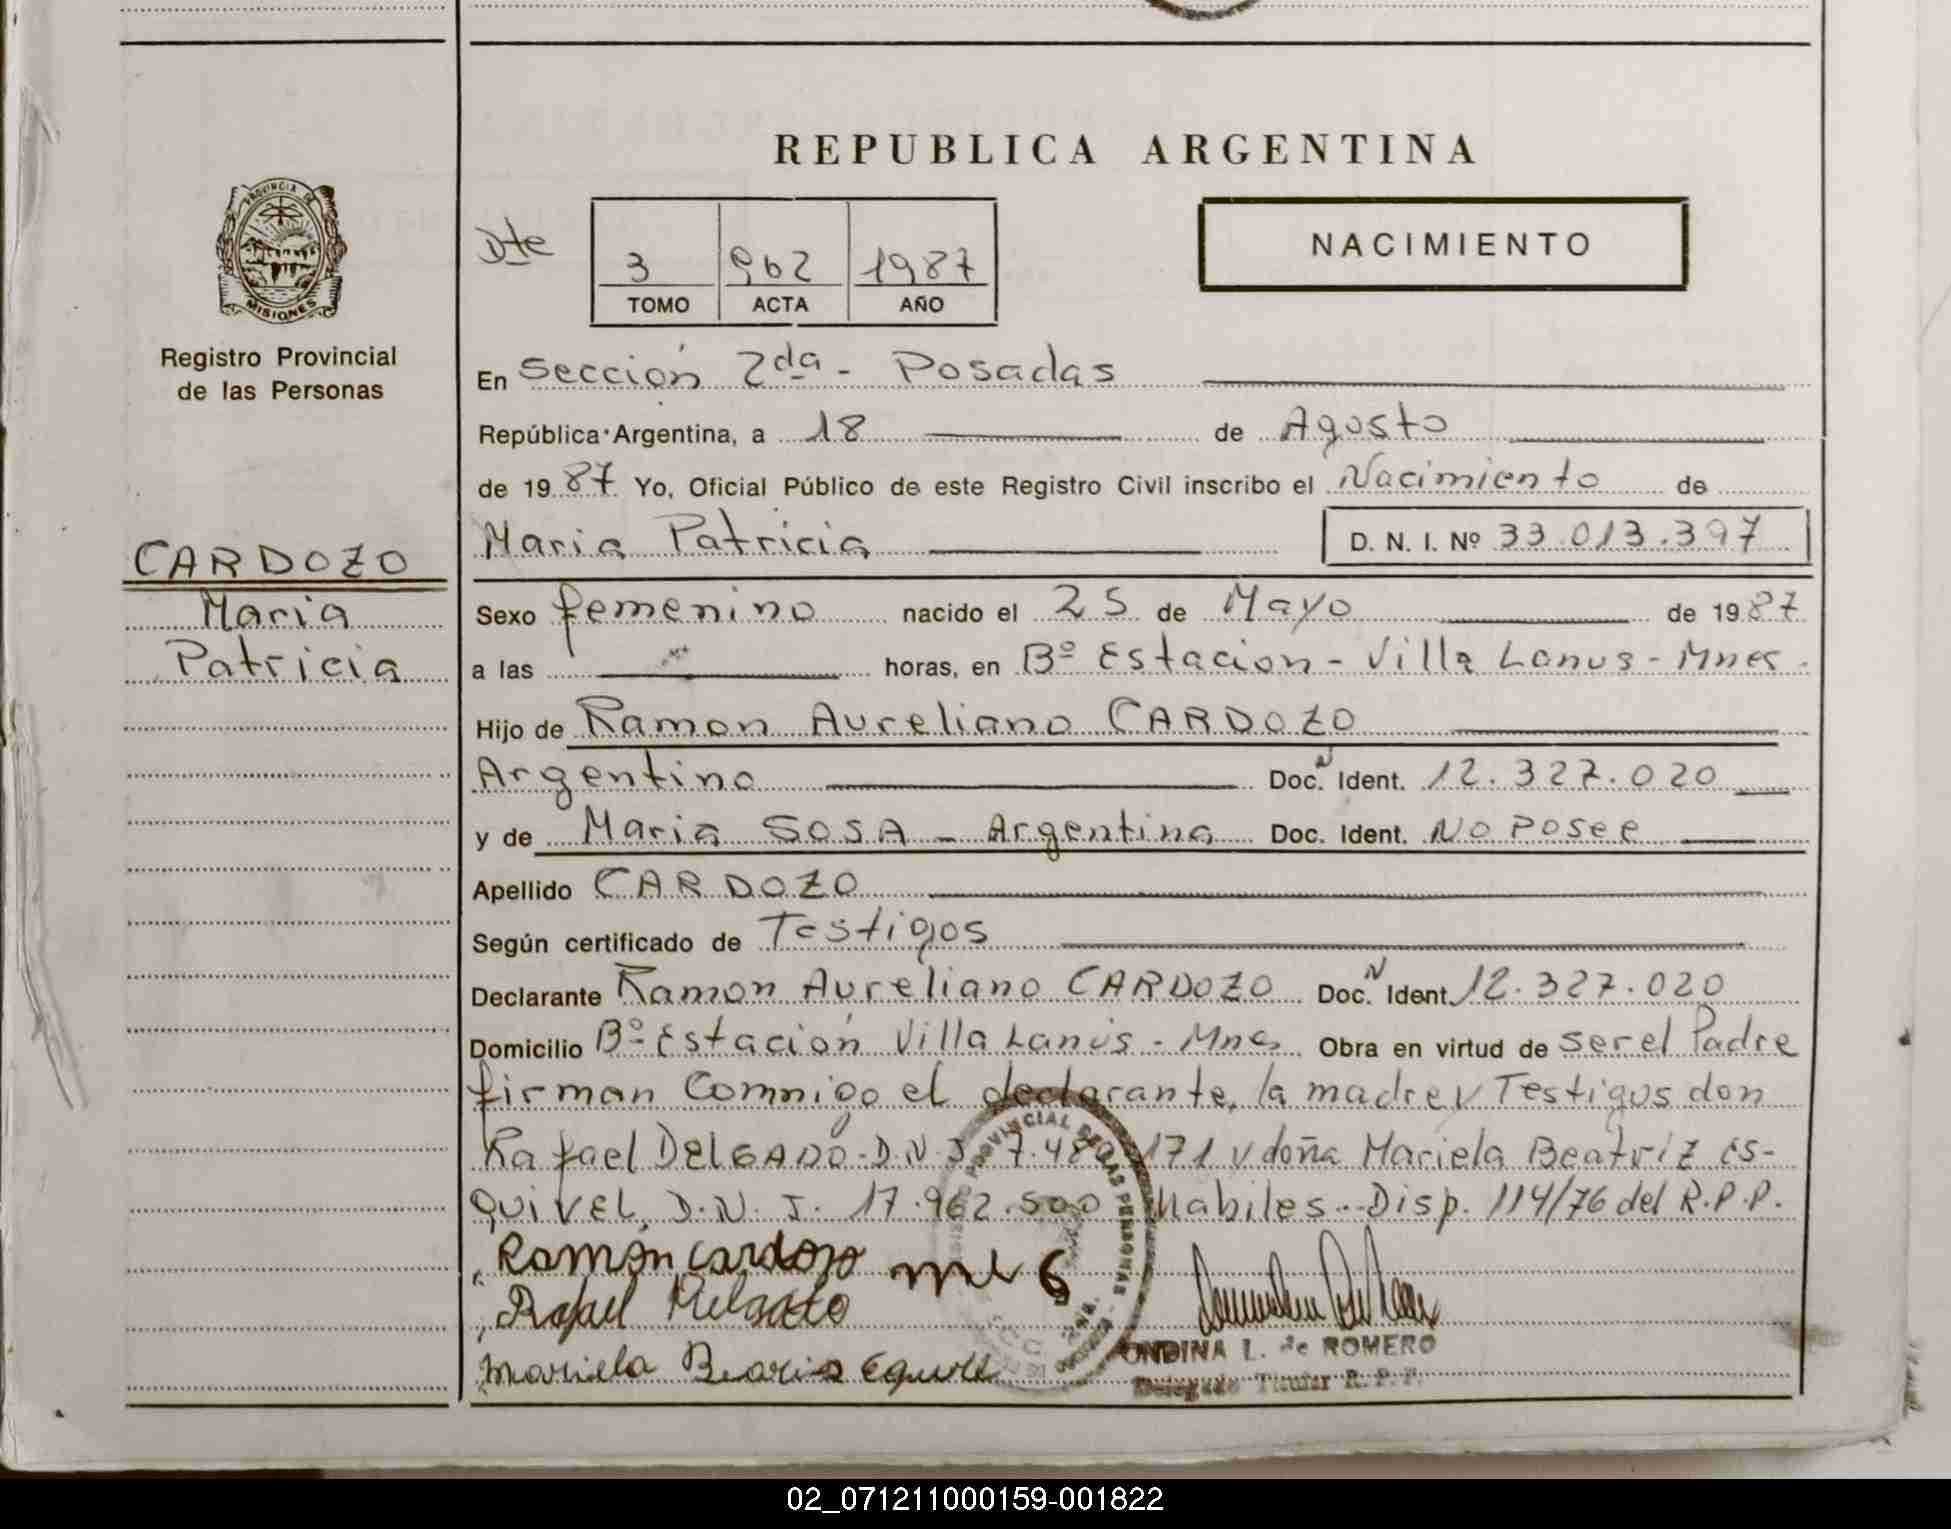 REPUBLICA ARGENTINA
PROVINCIA DE
MISIONES
Registro Provincial
de las Personas
CARDOZO
Maria
Patricia
Dte
3 962 1987
TOMO ACTA AÑO
NACIMIENTO
En Sección 2da - Posadas
República Argentina, a 18 de Agosto
de 1987 Yo, Oficial Público de este Registro Civil inscribo el Nacimiento de
Maria Patricia D. N. I. Nº 33.013.397
Sexo femenino nacido el 25 de Mayo de 1987
a las horas, en Bº Estacion - Villa Lanus - Mnes.
Hijo de Ramon Aureliano CARDOZO
Argentino Doc. N Ident. 12.327.020
y de Maria SOSA - Argentina Doc. Ident. No posee
Apellido CARDOZO
Según certificado de Testigos
Declarante Ramon Aureliano CARDOZO Doc. N Ident. 12.327.020
Domicilio Bº Estación Villa Lanús - Mnes Obra en virtud de ser el Padre
firman Comnigo el declarante, la madre y Testigos don
Rafael DELGADO - D.N.I. 7.48 171 y doña Mariela Beatriz ES-
QUIVEL, D.N.I. 17.962.500 habiles.- Disp. 114/76 del R.P.P.
Ramon cardozo
Rafael
Mariela
PROVINCIAL DE LAS PERSONAS
ONDINA L. de ROMERO
Delegado Titular R. P. P.
02_071211000159-001822